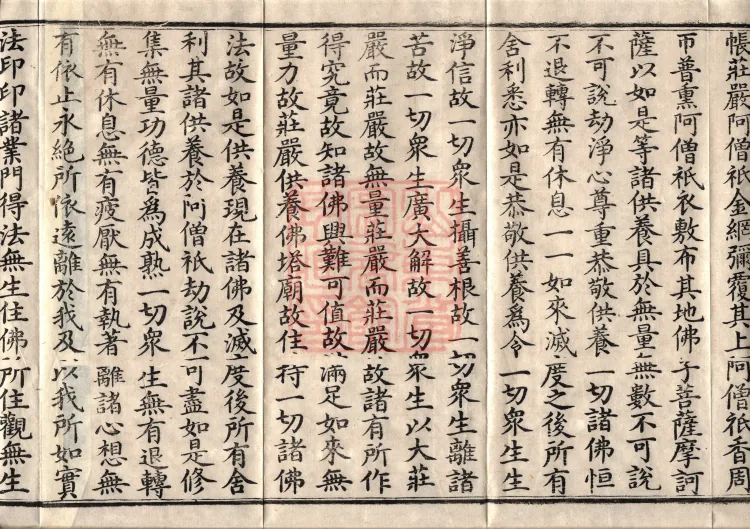 帳莊嚴阿僧祇金網彌覆其上阿僧祇香周
帀普熏阿僧祇衣敷布其地佛子菩薩摩訶
薩以如是等諸供養具於無量無數不可說
不可說劫淨心尊重恭敬供養一切諸佛恒
不退轉無有休息一一如來滅度之後所有
舍利悉亦如是恭敬供養爲令一切眾生生
淨信故一切眾生攝善根故一切眾生離諸
苦故一切眾生廣大解故一切眾生以大莊
嚴而莊嚴故無量莊嚴而莊嚴故諸有所作
得究竟故知諸佛興難可值故滿足如來無
量力故莊嚴供養佛塔廟故住持一切諸佛
法故如是供養現在諸佛及滅度後所有舍
利其諸供養於阿僧祇劫說不可盡如是修
集無量功德皆爲成熟一切眾生無有退轉
無有休息無有疲厭無有執著離諸心想無
有依止永絕所依遠離於我及以我所如實
法印印諸業門得法無生住佛所住觀無生